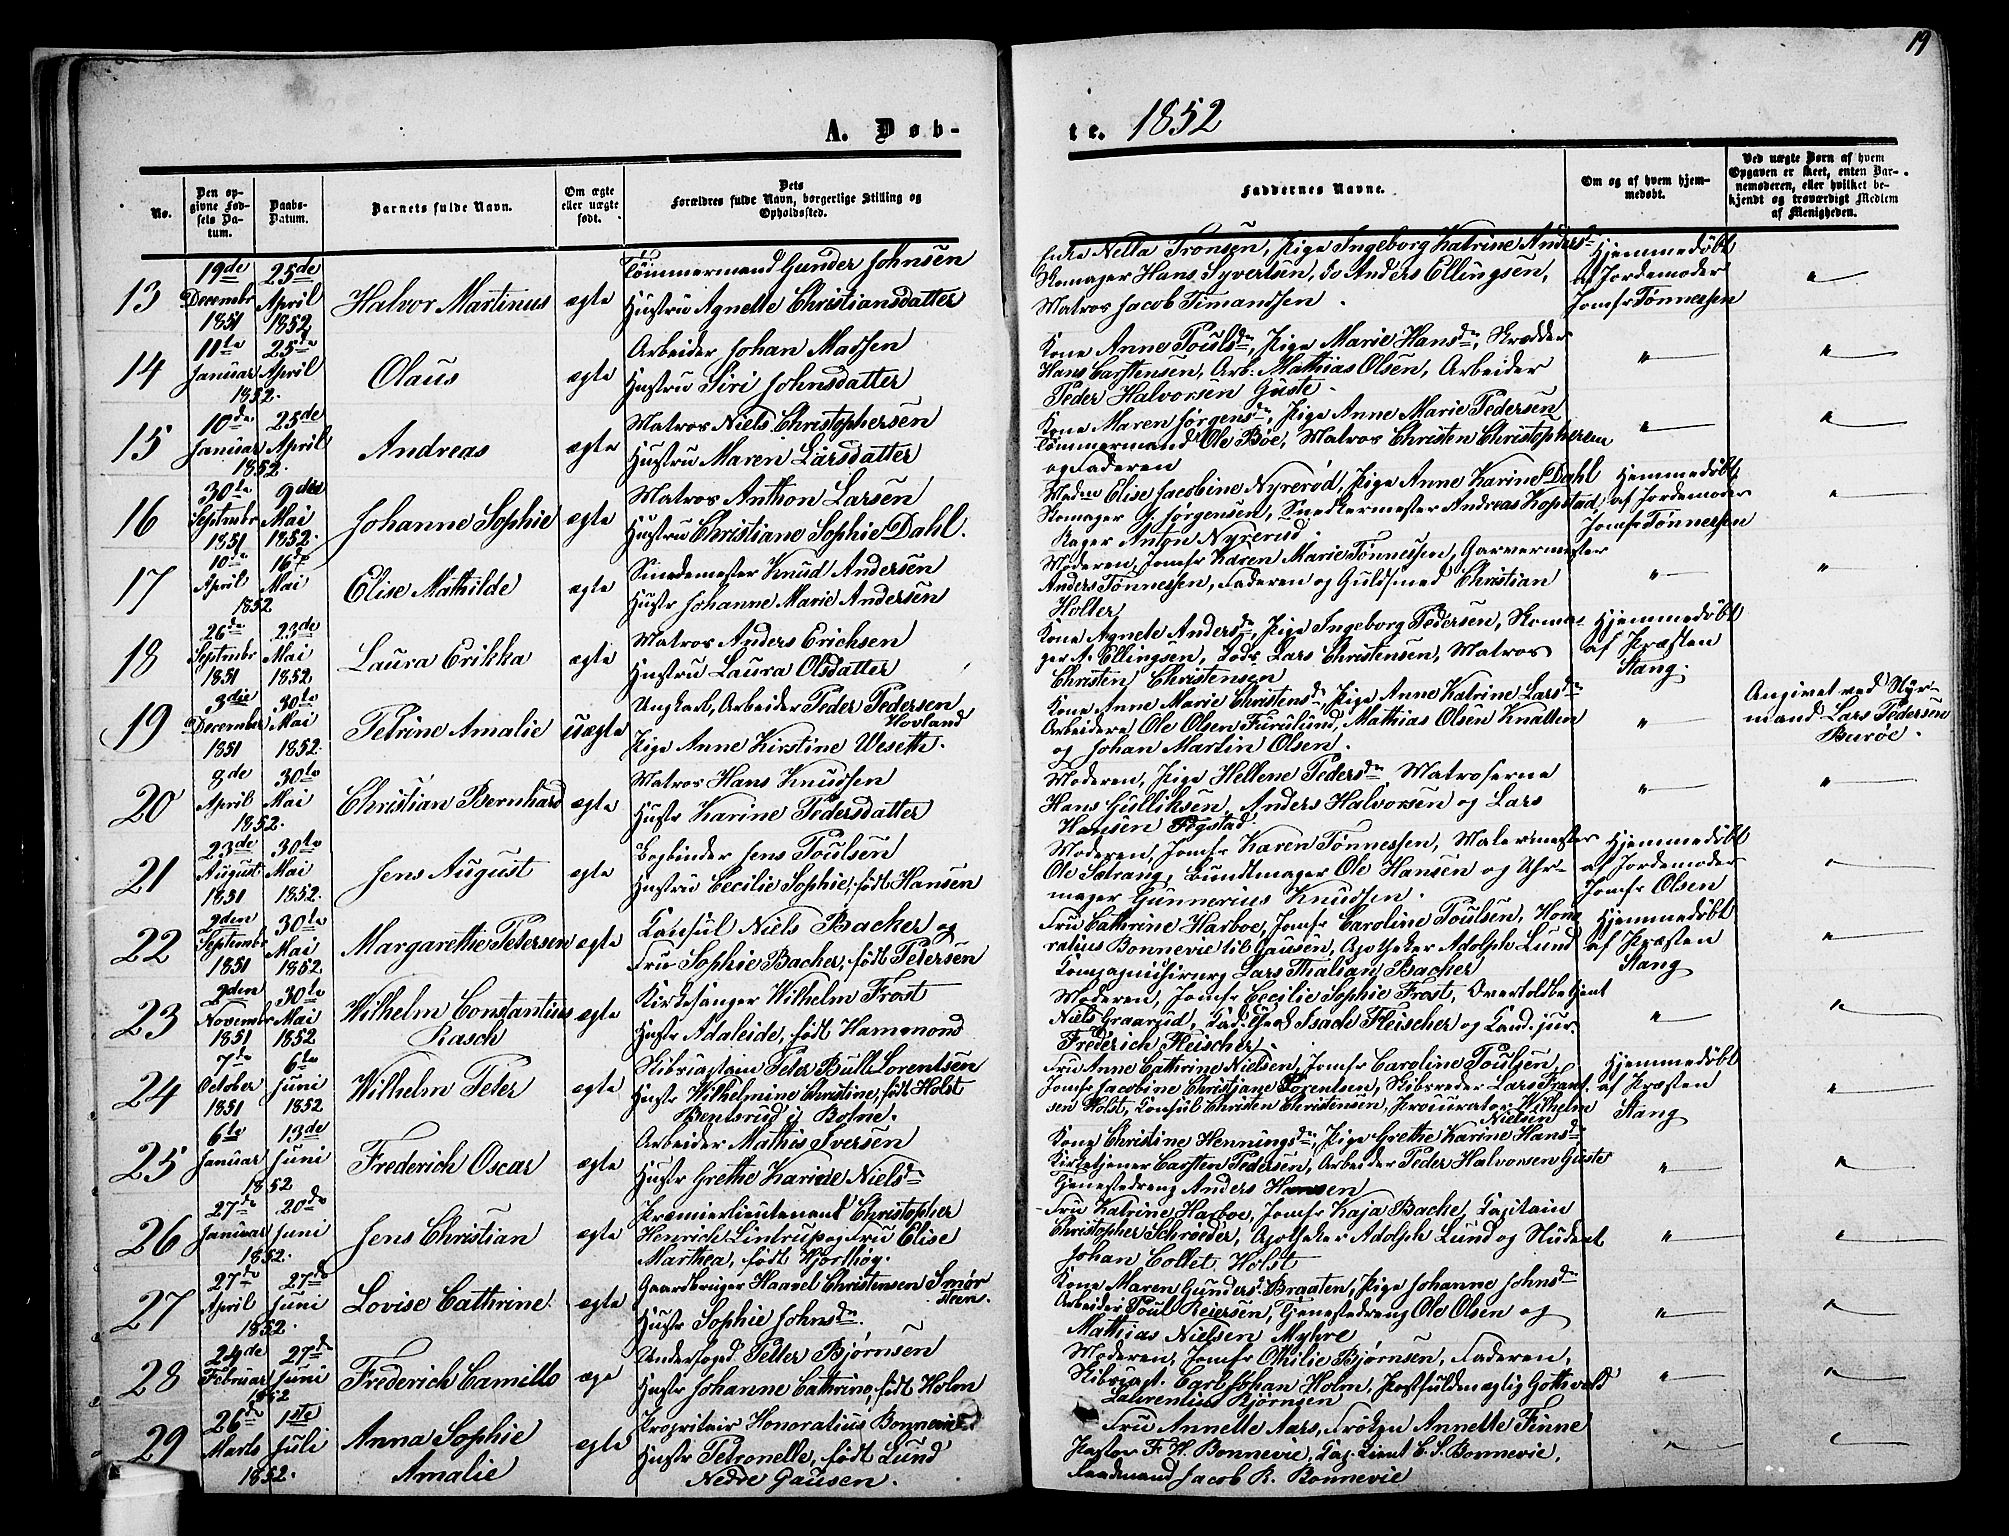 19
A. Døb-
te. 1852
No.
Den op-
givne Fød-
sels Da-
tum.
Daabs-
Datum.
Barnets fulde Navn.
Om ægte
eller uægte
født.
Dets
Forældres fulde Navn, borgerlige Stilling og
Opholdssted.
Faddernes Navne.
Om og af hvem hjem-
medøbt.
Ved uægte Børn af hvem
Opgaven er skeet, enten Bar-
nemoderen, eller hvilket be-
kjendt og troværdigt Medlem
af Menigheden.
13
19de
Decembr
1851
25de
April
1852
Halvor Martinus
ægte
Tømmermand Gunder Johnsen
Hustru Agnette Christiansdatter
Nella Tronsen, Pige Ingeborg Katrine Andersd.
Skomager Hans Syvertsen, do Anders Ellingsen,
Matros Jacob Timandsen.
Hjemmedøbt
af Jordemoder
Jomfr Tønnessen
"
14
11te
Januar
1852.
25de
April
Olaus
ægte
Arbeider Johan Madsen
Hustru Siri Johnsdatter
Kone Anne Poulsdr, Pige Marie Hansdr, Skrædder
Hans Carstensen, Arb. Mathias Olsen, Arbeider
Peder Halvorsen Guste.
"
"
15
10de
Januar
1852.
25de
April
Andreas
ægte
Matros Niels Christophersen
Hustru Maren Larsdatter
Kone Maren Jørgensdr, Pige Anne Marie Pedersen
Tømmermand Ole Bøe, Matros Christen Christophersen
og Faderen
"
"
16
30te
Septembr
1851
9de
Mai
1852.
Johanne Sophie
ægte
Matros Anthon Larsen
Hustru Christiane Sophie Dahl.
Madm Elise Jacobine Nyrerød, Pige Anne Karine Dahl
Skomager J. Jørgensen, Snedkermester Andreas Kopstad,
Bager Anton Nyrerud.
Hjemmedøbt
af Jordemoder
Jomfr Tønnessen
"
17
10de
April
1852
16de
Mai
Elise Mathilde
ægte
Smedemester Knud Andersen
Hustr Johanne Marie Andersen
Moderen, Jomfr Karen Marie Tønnessen, Garvermester
Anders Tønnessen, Faderen og Guldsmed Christian
Holter
"
"
18
26de
Septembr
1851
23de
Mai
1852.
Laura Erikka
ægte
Matros Anders Erichsen
Hustru Laura Olsdatter
Kone Agnete Andersdr, Pige Ingeborg Pedersen, Skoma-
ger A. Ellingsen, Lods Lars Christensen, Matros
Christen Christensen
Hjemmedøbt
af Præsten
Stang.
19
3die
December
1851
30te
Mai
1852.
Petrine Amalie
uægte
Ungkarl, Arbeider Peder Pedersen
Hovland
Pige Anne Kirstine Wesette.
Kone Anne Marie Christensdr, Pige Anne Katrine Larsdr
Arbeidere Ole Olsen Furulund, Mathias Olsen Knatten
og Johan Martin Olsen.
"
Angivet ved Styr-
mand Lars Pedersen
Burøe.
20
8de
April
1852.
30te
Mai
Christian Bernhard
ægte
Matros Hans Knudsen
Hustr Karine Pedersdatter
Moderen, Pige Hellene Pedersdr Matroserne
Hans Gulliksen, Anders Halvorsen og Lars
Hansen Fogstad
"
"
21
23de
August
1851
30te
Mai
1852.
Jens August
ægte
Bogbinder Jens Poulsen
Hustru Cecilie Sophie, født Hansen
Moderen, Jomfr Karen Tønnessen, Malermester
Ole Sætrang, Bundtmager Ole Hansen og Uhr-
mager Gunnerius Knudsen.
Hjemmedøbt
af Jordemoder
Jomfr Olsen
"
22
2den
Septembr
1851
30te
Mai
1852
Margarethe Petersen
ægte
Konsul Niels Backer og
Fru Sophie Backer, født Petersen
Fru Cathrine Harboe, Jomfr Caroline Poulsen, Hono
ratius Bonnevie til Gausen, Apotheker Adolph Lund
Kompagnichirurg Lars Thalian Backer
Hjemmedøbt
af Præsten
Stang
"
23
2den
Novembr
1851
30te
Mai
1852
Wilhelm Constantius
Rasch
ægte
Kirkesanger Wilhelm Frost
Hustr Adaleide, født Hammond
Moderen, Jomfr Cecilie Sophie Frost, Overtoldbetjent
Niels Graarud, Isach Fleischer og Cand. jur.
Frederich Fleischer.
"
"
24
7de
October
1851
6te
Juni
1852
Wilhelm Peter
ægte
Skibscaptain Peter Bull Lorentsen
Hustr Wilhelmine Christine, født Holst
Bentsrud i Botne.
Fru Anne Cathrine Nielsen, Jomfr Caroline Poulsen,
Jomfr Jacobine Christiane Lorentsen, Skibsreder Lars Frant
sen Holst, Konsul Christen Christensen, Procurator Wilhelm
Nielsen
Hjemmedøbt
af Præsten
Stang
"
25
6te
Januar
1852
13de
Juni
Frederich Oscar
ægte
Arbeider Mathis Iversen
Hustr Grethe Karine Nielsdr
Kone Christine Henningsdr, Pige Grethe Karine Hansdr,
Kirketjener Carsten Pedersen, Arbeider Peder Halvorsen Guste
Tjenestedreng Anders Hansen
"
"
26
27de
Januar
1852.
20de
Juni
Jens Christian
ægte
Premierlieutenant Christopher
Henrich Lintrup og Fru Elise
Marthea, født Hjorthøy.
Fru Katrine Harboe, Jomfr Kaja Backe, Capitain
Christopher Schrøeder, Apotheker Adolph Lund og Student
Johan Collet Holst
"
"
27
27de
April
1852.
27de
Juni
Lovise Cathrine
ægte
Gaardbruger Haavel Christensen Smør
steen.
Hustr Sophie Johnsdr.
Kone Maren Gunders. Braaten, Pige Johanne Johnsdr
Arbeider Poul Reiersen, Tjenestedreng Ole Olsen og
Mathias Nielsen Myhre
"
"
28
24de
Februar
1852
27de
Juni
Frederich Camillo
æge
Underfoged Petter Bjørnsen
Hustr Johanne Cathrine, født Holm
Moderen, Jomfr Othilie Bjørnsen, Faderen,
Skibscapt. Carl Johan Holm, Postfuldmægtig Gottwald
Laurentius Bjørnsen
"
"
29
26de
Marts
1852.
1ste
Juli
Anna Sophie
Amalie
ægte
Propritair Honoratius Bonnevie
Hustr Petronelle, født Lund
Nedre Gausen.
Fru Annette Aars, Frøken Annette Finne
Pastor F. H. Bonnevie, Cap. Lieut C. S. Bonnevie,
Landmand Jacob R. Bonnevie
"
"